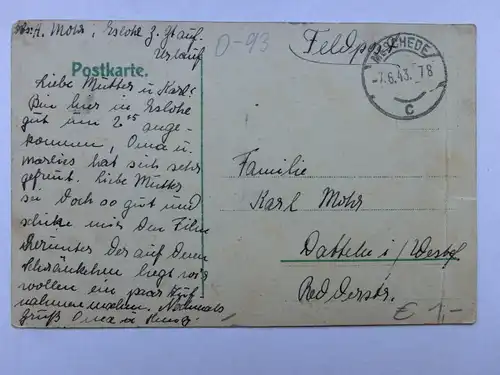 Abs. A. Mohr, Eslohe z. Zt auf
Urlaub
D-93
Feldpost
MESCHEDE
-7.6.43. 78
c
Postkarte.
Liebe Mutter u. Karl!
Bin hier in Eslohe
gut um 2 05 ange-
kommen, Oma u.
Marlies hat sich sehr
gefreut. Liebe Mutter
sei doch so gut und
schicke mir den Film
herunter der auf dem
Schränkchen liegt wir
wollen ein paar Auf-
nahmen machen. Nochmals
Gruß Oma u.
Familie
Karl Mohr
Datteln i/Westf
Redderstr.
€ 1,-